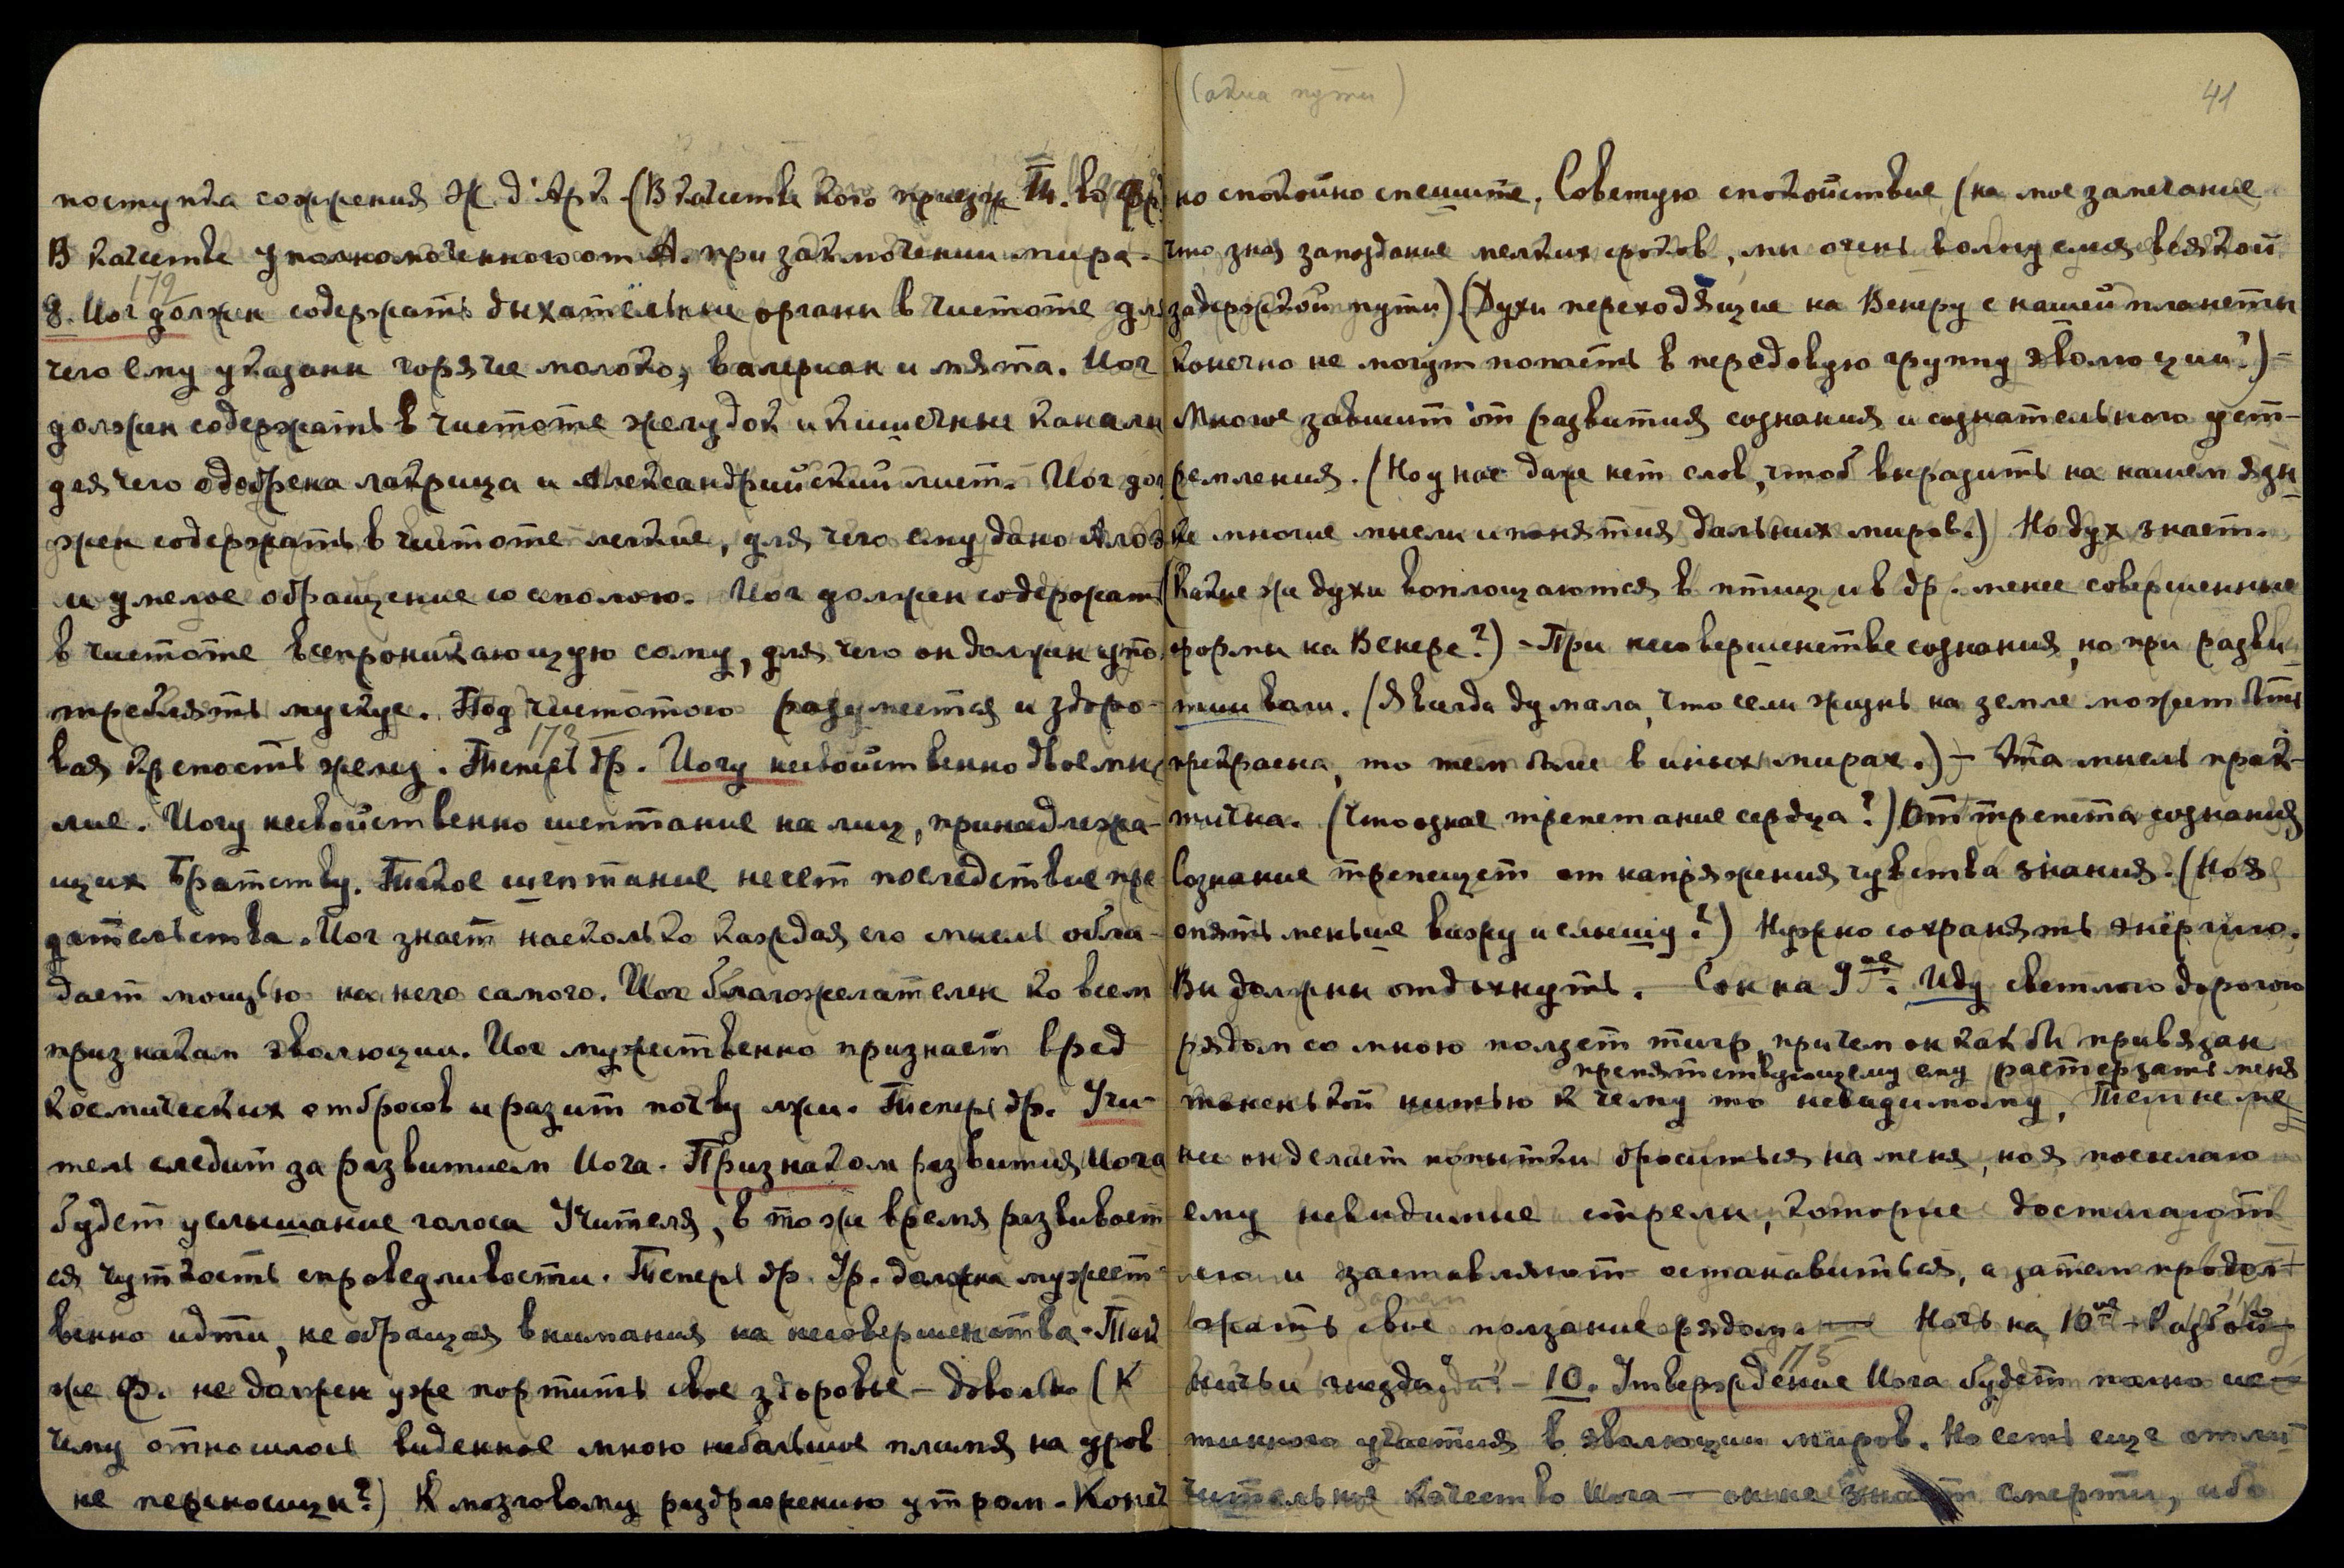 поступка сожжения Ж. д'Арк. (В качестве кого приезж. Th. во Фр.)
В качестве уполномоченного от А. при заключении мира.
172
8. Иог должен содержать дыхательные органы в чистоте для
чего ему указаны горячее молоко, валериан и мята. Иог
должен содержать в чистоте желудок и кишечные каналы
для чего одобрена лакрица и Александрийский лист. Иог дол
жен содержать в чистоте легкие, для чего ему дано Алоэ
и умелое обращение со смолою. Иог должен содержать
в чистоте всепроникающую сому, для чего он должен упо
треблять мускус. Под чистотою разумеется и здоро-
вая крепость желез. Теперь др. Иогу несвойственно двоемыс
173
лие. Иогу несвойственно шептание на лиц, принадлежа-
щих Братству. Такое шептание несет последствие пре
дательства. Иог знает насколько каждая его мысль обла-
дает мощью на него самого. Иог благожелателен ко всем
признакам эволюции. Иог мужественно признает вред
космических отбросов и разит почву лжи. Теперь др. Учи-
тель следит за развитием Иога. Признаком развития Иога
будет услышание голоса Учителя, в то же время развивает
ся чуткость справедливости. Теперь др. Ур. должна мужест-
венно идти, не обращая внимания на несовершенства. Так
же Ф. не должен уже портить свое здоровье – довольно (К
чему относилось виденное мною небольшое пламя на уров
не переносицы?) К мозговому раздражению утром. Конеч
(окна пути)
41
но спокойно спешите. Советую спокойствие (на мое замечание
что зная запоздание мелких сроков, мы очень волнуемся всякой
задержкой пути) (Духи переходящие на Венеру с нашей планеты
конечно не могут попасть в передовую группу эволюции?) –
Многое зависит от развития сознания и сознательного уст-
ремления. (Но у нас даже нет слов, чтоб выразить на нашем язы
ке многие мысли и понятия дальних миров.) Но дух знает.
(Какие же духи воплощаются в птиц и в др. менее совершенные
формы на Венере?) – При несовершенстве сознания, но при разви
тии ваги. (Я всегда думала, что если жизнь на земле может быть
прекрасна, то тем более в иных мирах.) – Эта мысль прак-
тична. (Что означ. трепетание сердца?) От трепета сознания
Сознание трепещет от напряжения чувства знания. (Но я
опять меньше вижу и слышу?) Нужно сохранять энергию.
Вы должны отдохнуть. – Сон на 9ое. Иду светлою дорогою
рядом со мною ползет тигр, причем он как бы привязан
препятствующему ему растерзать меня
тоненькой нитью к чему то невидимому, Тем не ме
нее он делает попытки броситься на меня, но я посылаю
ему невидимые стрелы, которые достигают
его и заставляют остановиться, а затем продол-
жать свое ползание рядом. — Ночь на 10ое – Разбой-
затем
ничьи гнезда. – 10. Утверждение Иога будет полно ис-
175
тинного участия в эволюции миров. Но есть еще отли
чительное качество Иога — он не знает смерти, ибо